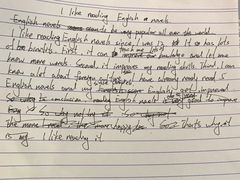 I like reading English novels
English novels are very popular all over the world.
I like reading English novels since I was 13. It has lots
of benefits. First, it can improve our knowledge and let me
know more words. Second, it improves my reading skills. Third, I can
know a lot about foreign. I have already read 5
English novels and my English get improved
So conclusion, reading English novels is very good to improve
So why not try it
the more I read the more So That's why it
is my I like reading it